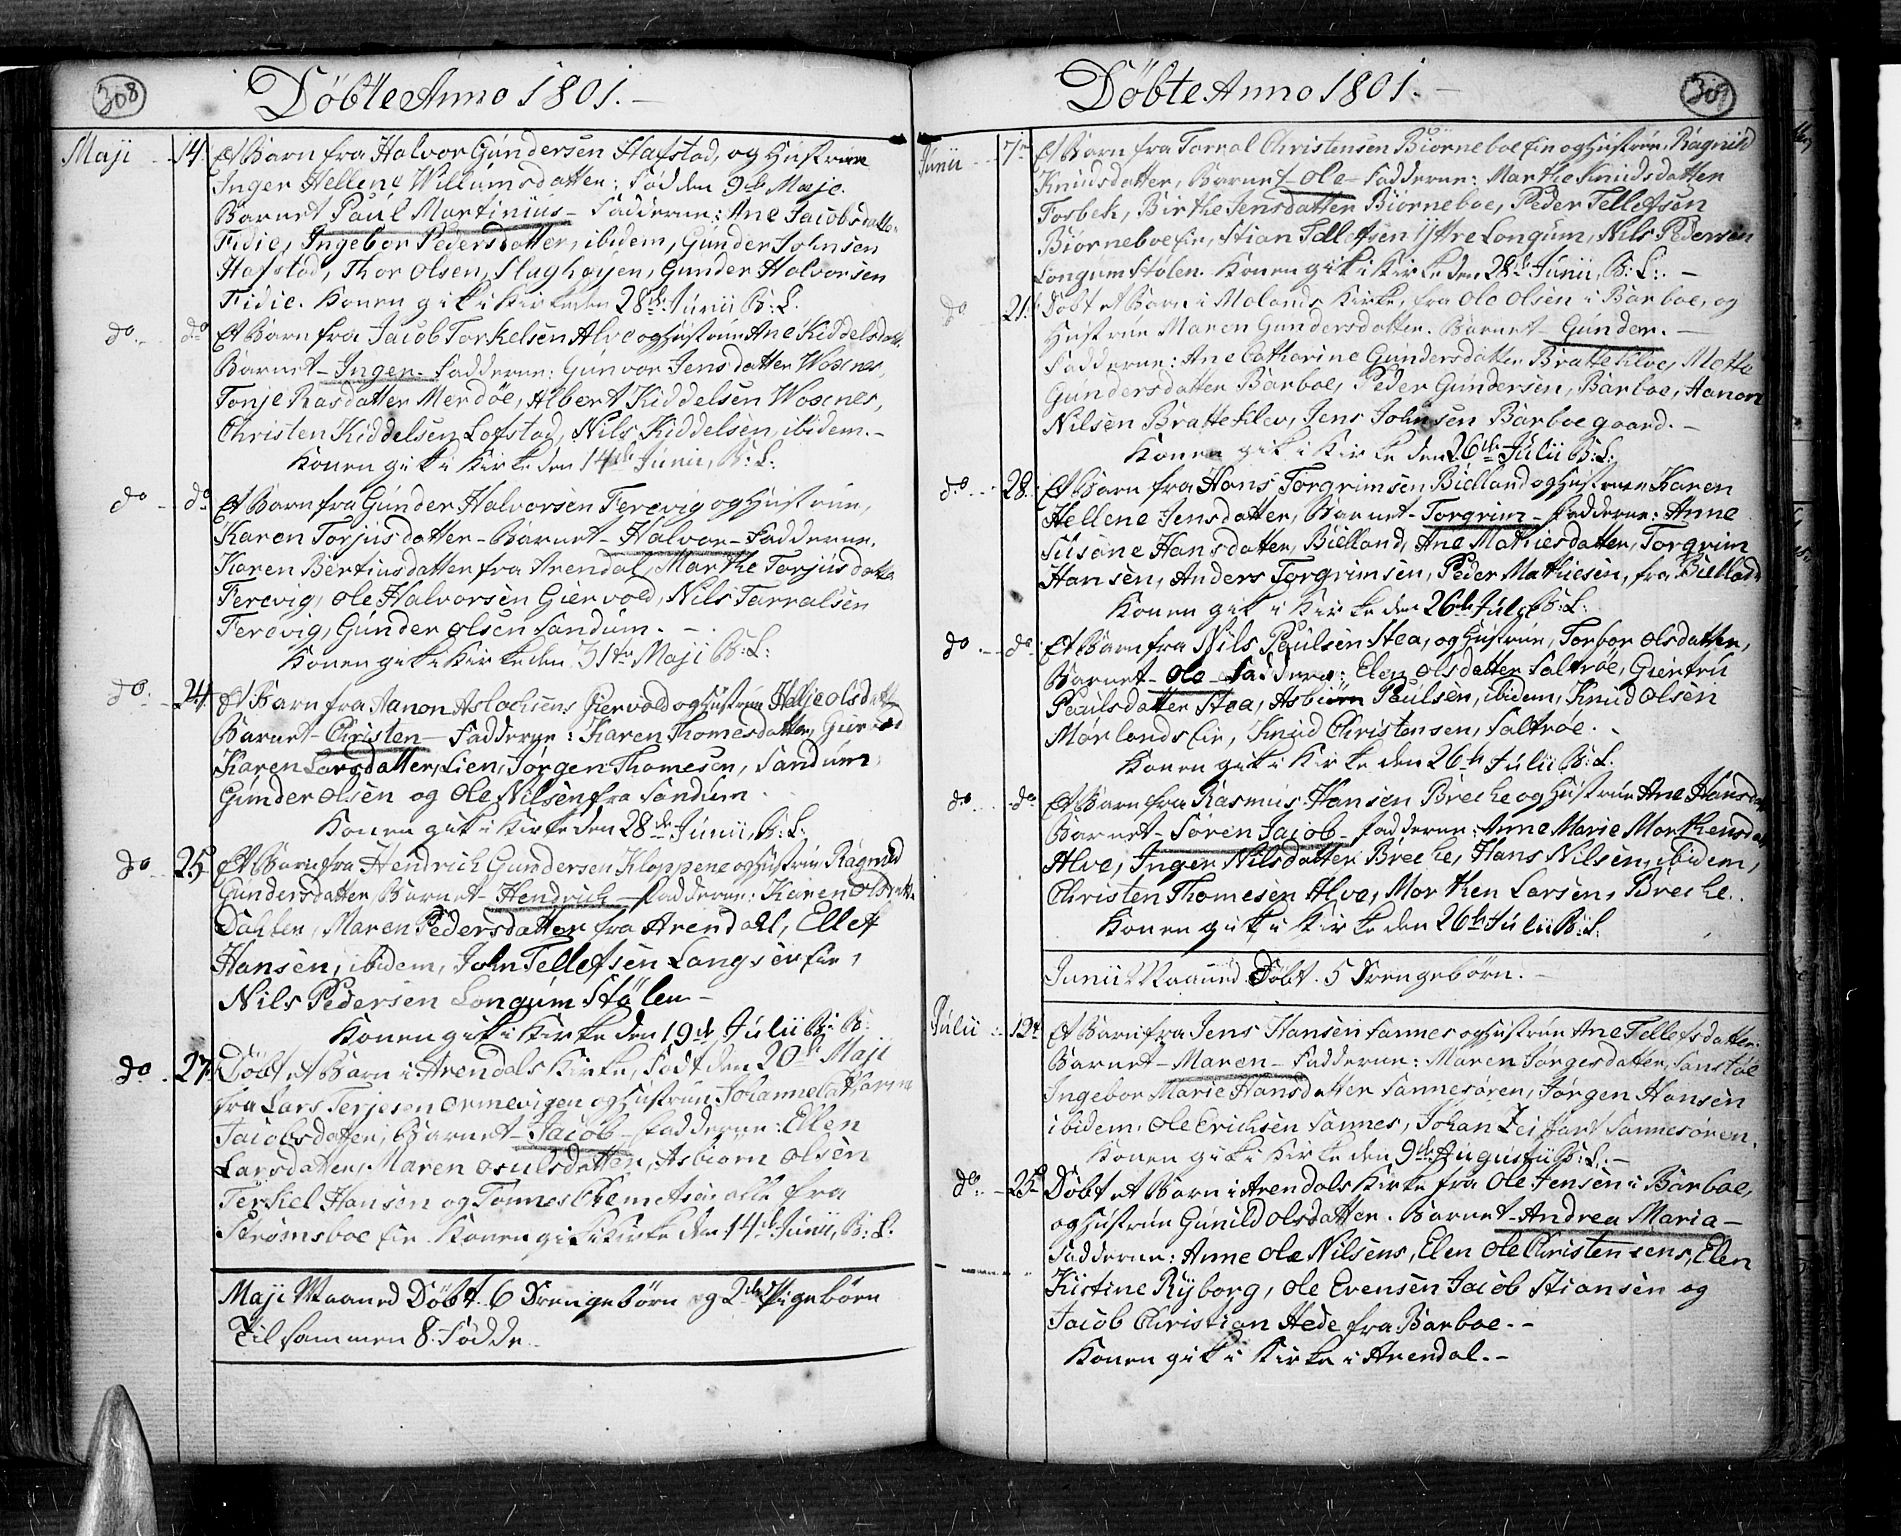 308
Döbte Anno 1801.
Maji 14. Et Barn fra Halvor Gundersen Hafstad, og Hustrue
Inger Hellene Willumsdatter: Fød den 9de Maje.
Barnet Paul Martinius - Fadderne: Ane Jacobsdatter
Fidie, Ingebor Pedersdatter, ibidem, Gunder Johnsen
Hafstad, Thor Olsen, Slughøyen, Gunder Halvorsen
Fidie. Konen gik i Kirke den 28de Junii B: L.
do. do Et Barn fra Jacob Torkelsen Alve og Hustrue Ane Kiddelsdatt.
Barnet - Inger - Fadderne: Gunvor Jensdatter Woxnes,
Tonje Rasdatter Merdöe, Albert Kiddelsen Woxnes,
Christen Kiddelsen Lofstad, Nils Kiddelsen, ibidem. -
Konen gik i Kirke den 14de Junii, B: L:
do - do Et Barn fra Gunder Halvorsen Ferevig og Hustrue,
Karen Torjusdatter - Barnet - Halvor - Fadderne.
Karen Bertiusdatter fra Arendal, Marthe Torjusdatter
Ferevig, Ole Halvorsen Giervold, Nils Tarralsen
Ferevig, Gunder Olsen Sandum. -
Konen gik i Kirke den 31te Maji B: L:
do. 24. Et Barn fra Aanon Aslachsens Giervold og Hustrue Helje Olsdatt
Barnet - Christen - Fadderne: Karen Thomesdatter,
Karen Larsdatter, Lien, Jørgen Thomesen, Sandum,
Gunder Olsen og Ole Nilsen fra Sandum.
Konen gik i Kirke den 28de Junii, B: L:
do 25 Et Barn fra Hendrich Gundersen Kloppene og Hustrue Ragnild
Gundersdatter Barnet - Hendrich - Fadderne: Karen Olsdatter
Maren Pedersdatter fra Arendahl, Ellef
Hansen, ibidem, John Tellefsen Langsev Eie,
Nils Pedersen Longum Stølen -
Konen gik i Kirke den 19de Julii B: L:
do. 27. Döbt et Barn i Arendals Kirke, Født den 20de Maji
fra Lars Terjesen Ormevigen og Hustrue Johanne Catharine
Jacobsdatter, Barnet - Jacob - Fadderne: Ellen
Larsdatter, Maren Osulsdatter, Asbiørn Olsen
Terkel Hansen og Tønnes Clemetsen alle fra
Strømsboe Eie Konen gik i Kirke den 14de Junii, B: L.
Maji Maaned Döbt. 6 Drengebörn og 2de Pigebörn
Tilsammen 8. Fødde.
309
Döbte Anno 1801. -
Junii 7de Et Barn fra Tarral Christensen Biørneboe Eie og Hustrue, Ragnild
Knudsdatter, Barnet - Ole - Fadderne: Marthe Knudsdatter
Fosbek, Birthe Jensdatter Biorneboe, Peder Tellefsen
Biorneboe Eie, Stian Tellefsen Ytre Longum, Nils Pedersen
Longum Stølen. Konen gik i Kirke den 28de Junii, B: L: -
do 21. Döbt et Barn i Molands Kirke, fra Ole Olsen i Barboe, og
Hustrue Maren Gundersdatter. Barnet - Gunder. -
Fadderne: Ane Catharine Gundersdatter Bratteklev, Mette
Gundersdatter Barboe, Peder Gundersen, Barboe, Hanon
Nilsen Bratteklev, Jens Johnsen Barboe gaard. -
Konen gik i Kirke den 26de Julii B: L:
do. - 28. Et Barn fra Hans Torgrimsen Bielland og Hustrue Karen
Hellene Jensdatter, Barnet - Torgrim - Fadderne: Anne
Susane Hansdatter, Bielland, Ane Mathiesdatter, Torgrim
Hansen, Anders Torgrimsen, Peder Mathiesen, fra Bielland
Konen gik i Kirke den 26de Julii B: L:
do - do Et Barn fra Nils Poulsen Stea, og Hustrue, Torbor Olsdatter,
Barnet - Ole - Fadderne: Elen Olsdatter Saltrøe, Giertru
Poulsdatter Stea, Asbiørn Poulsen, ibidem, Knud Olsen
Mørlands Eie, Knud Christensen, Saltrøe. -
Konen gik i Kirke den 26de Julii B: L.
do - do Et Barn fra Rasmus Hansen Breche og Hustrue Ane Hansdat
Barnet - Søren Jacob - Fadderne: Anne Marie Morthensdat
Alve, Inger Nilsdatter Breche, Hans Nilsen, ibidem,
Christen Thomesen Alve, Morthen Larsen, Breche.
Konen gik i Kirke den 26de Julii B: L.
Junii Maaned Döbt. 5 Drengebörn. -
Julii 12te Et Barn fra Jens Hansen Sannes og Hustrue Ane Tellefsdatter.
Barnet - Maren - Fadderne: Maren Jørgesdatter, Sanstøe
Ingebor Marie Hansdatter Sannesøren, Jørgen Hansen
ibidem. Ole Erichsen Sannes, Johan Zeifart Sannesøren.
Konen gik i Kirke den 9de Augustii B: L: -
do. - 25 Döbt et Barn i Arendals Kirke fra Ole Jensen i Barboe,
og Hustrue Gunild Olsdatter. Barnet - Andrea Maria -
Fadderne: Anne Ole Nilsens, Elen Ole Christensens, Elen
Kistine Ryborg, Ole Evensen Jacob Stiansen og
Jacob Christian Hede fra Barboe. -
Konen gik i Kirke i Arendal. -